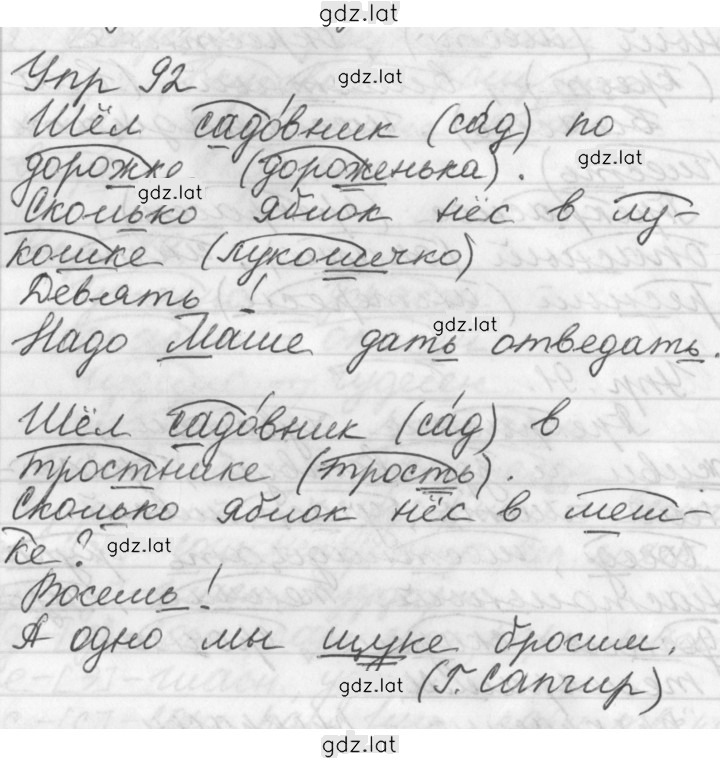 gdz.lat
Упр 92
gdz.lat
Шёл садо́вник (са́д) по
gdz.lat
дорожке (дороженька).
gdz.lat
Сколько яблок нёс в лу-
кошке (лукошечко)
Девять !
gdz.lat
Надо Маше дать отведать.
Шёл садо́вник (са́д) в
тростнике (трость).
Сколько яблок нёс в меш-
ке?
gdz.lat
Восемь!
А одно мы щуке бросим.
gdz.lat
(Г. Сапгир)
gdz.lat